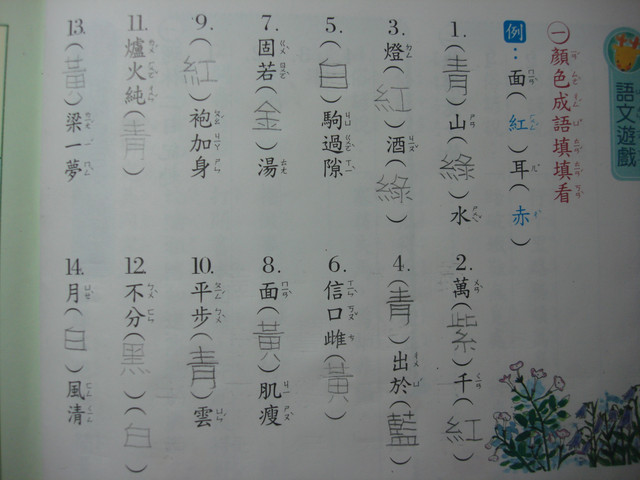 語文遊戲
㊀顏色成語填填看
例：面(紅)耳(赤)
1.(青)山(綠)水
2.萬(紫)千(紅)
3.燈(紅)酒(綠)
4.(青)出於(藍)
5.(白)駒過隙
6.信口雌(黃)
7.固若(金)湯
8.面(黃)肌瘦
9.(紅)袍加身
10.平步(青)雲
11.爐火純(青)
12.不分(黑)(白)
13.(黃)梁一夢
14.月(白)風清